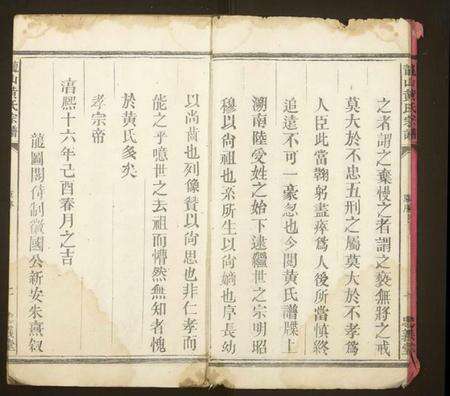 龍山黃氏宗譜
之者謂之棄慢之者謂之褻無將之戒
莫大於不忠五刑之屬莫大於不孝爲
人臣此當鞠躬盡瘁爲人後所當慎終
追遠不可一豪忽也今閱黃氏譜牒上
溯南陸受姓之始下逮繼世之宗明昭
穆以尚祖也系所生以尚嫡也序長幼
以尚齒也列像贊以尚思也非仁孝而
能之乎噫世之去祖而懵然無知者愧
於黃氏多矣
孝宗帝
淳熙十六年己酉春月之吉
龍圖閣待制徽國公新安朱熹叙
龍山黃氏宗譜